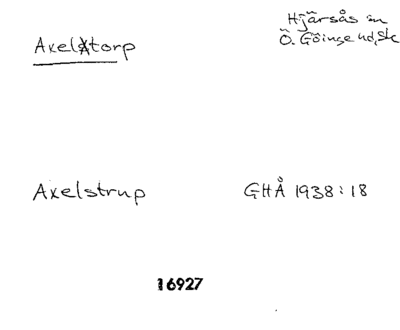 Axeltorp
Hjärsås sn
Ö. Göinge hd, Sk
Axelstrup
GHÅ 1938:18
16927